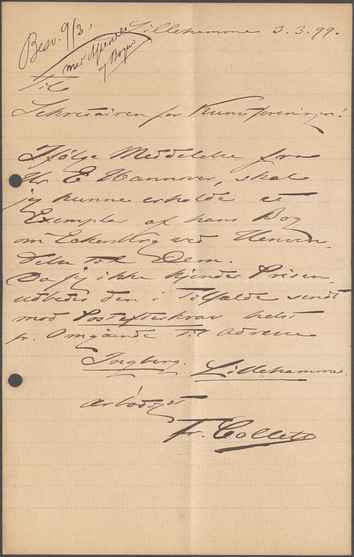 Besv. 9/3.
Lillehammer 3.3.99.
Til
Sekretæren for Kunstforeningen!
Ifølge Meddelelse fra
Hr. E Hannover, skal
jeg kunne erholde et
Exemplar af hans Bog
om Eckersberg ved Henven
delse til Dem.
Da jeg ikke kjender Prisen
udbedes den i Tilfælde sendt
med Postefterkrav helst
pr. Omgaaende til Adresse
Lillehammer.
Ærbødigst
Fr. Collett